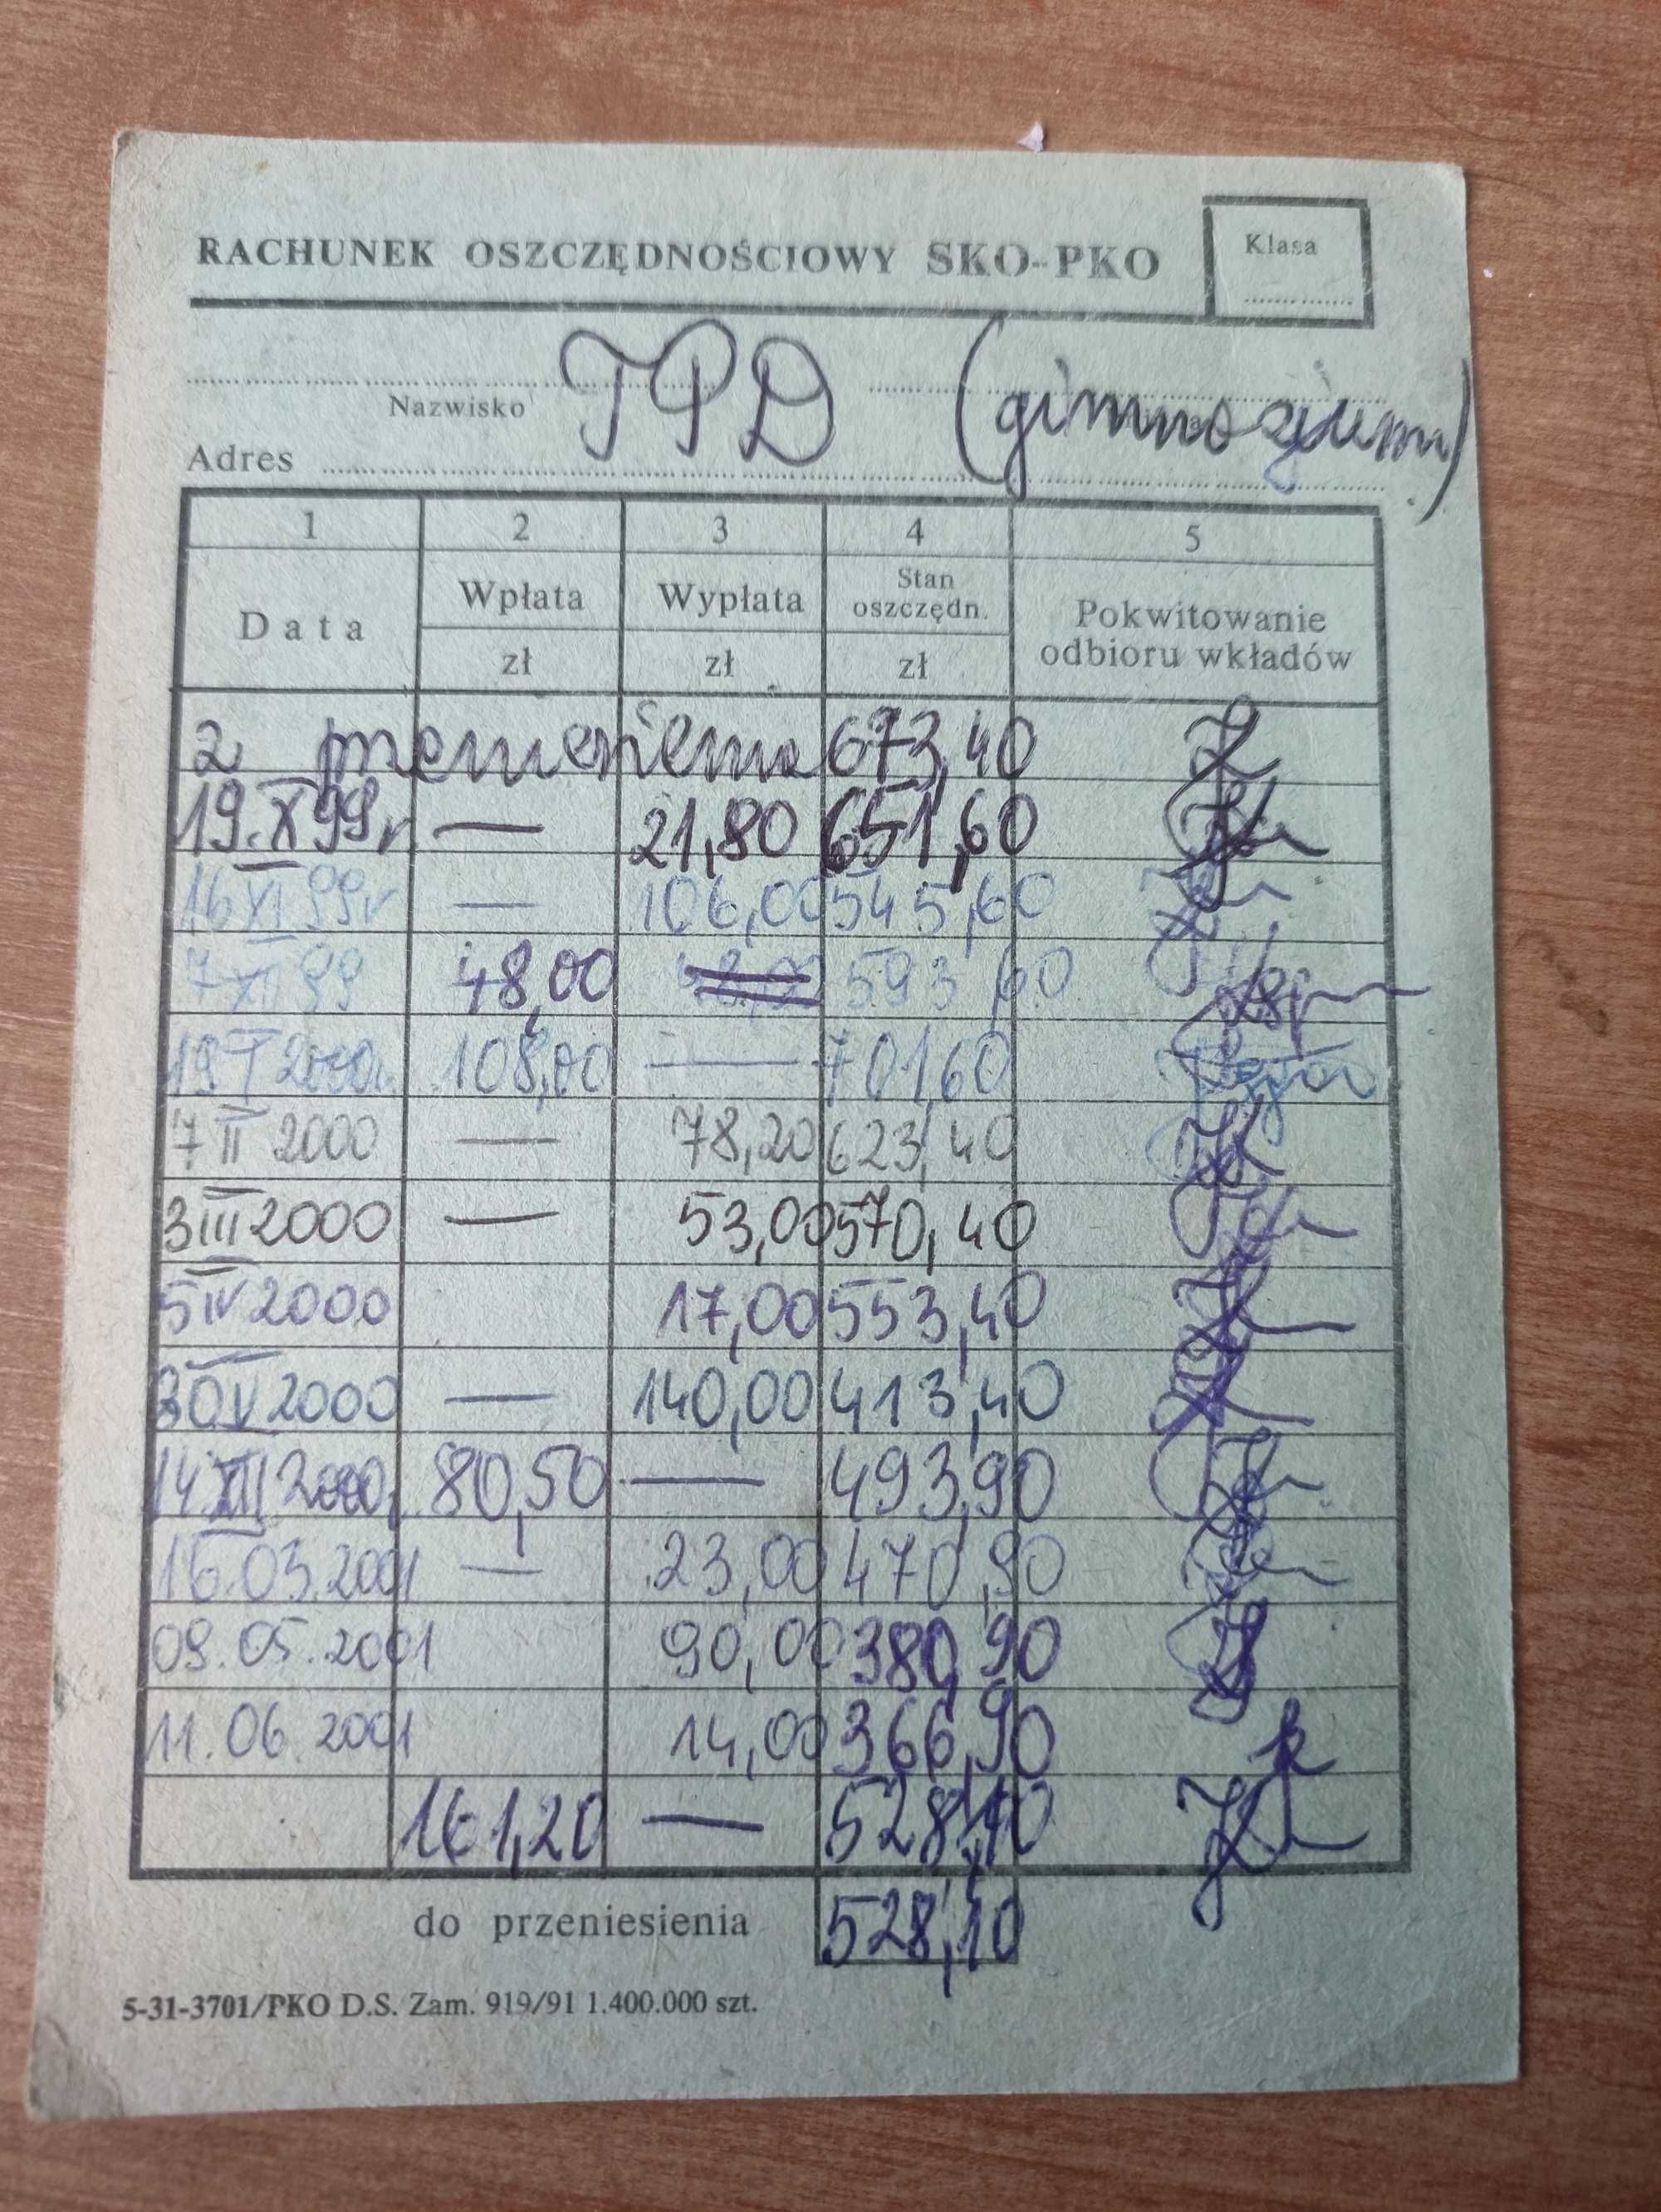 RACHUNEK OSZCZĘDNOŚCIOWY SKO-PKO
Klasa
TPD (gimnazjum)
Nazwisko
Adres
1 2 3 4 5
Data Wpłata zł Wypłata zł Stan oszczędn. zł Pokwitowanie odbioru wkładów
z przeniesienia 673,40
19.X99r — 21,80 651,60
16 XI 99r — 106,00 545,60
7 XII 99 48,00 593,60
19 I 2000r. 108,00 — 701,60
7 II 2000 — 78,20 623,40
3 III 2000 — 53,00 570,40
5 IV 2000 17,00 553,40
30 V 2000 — 140,00 413,40
14 XII 2000r. 80,50 — 493,90
16.03.2001 — 23,00 470,90
09.05.2001 90,00 380,90
11.06.2001 14,00 366,90
161,20 — 528,10
do przeniesienia 528,10
5-31-3701/PKO D.S. Zam. 919/91 1.400.000 szt.